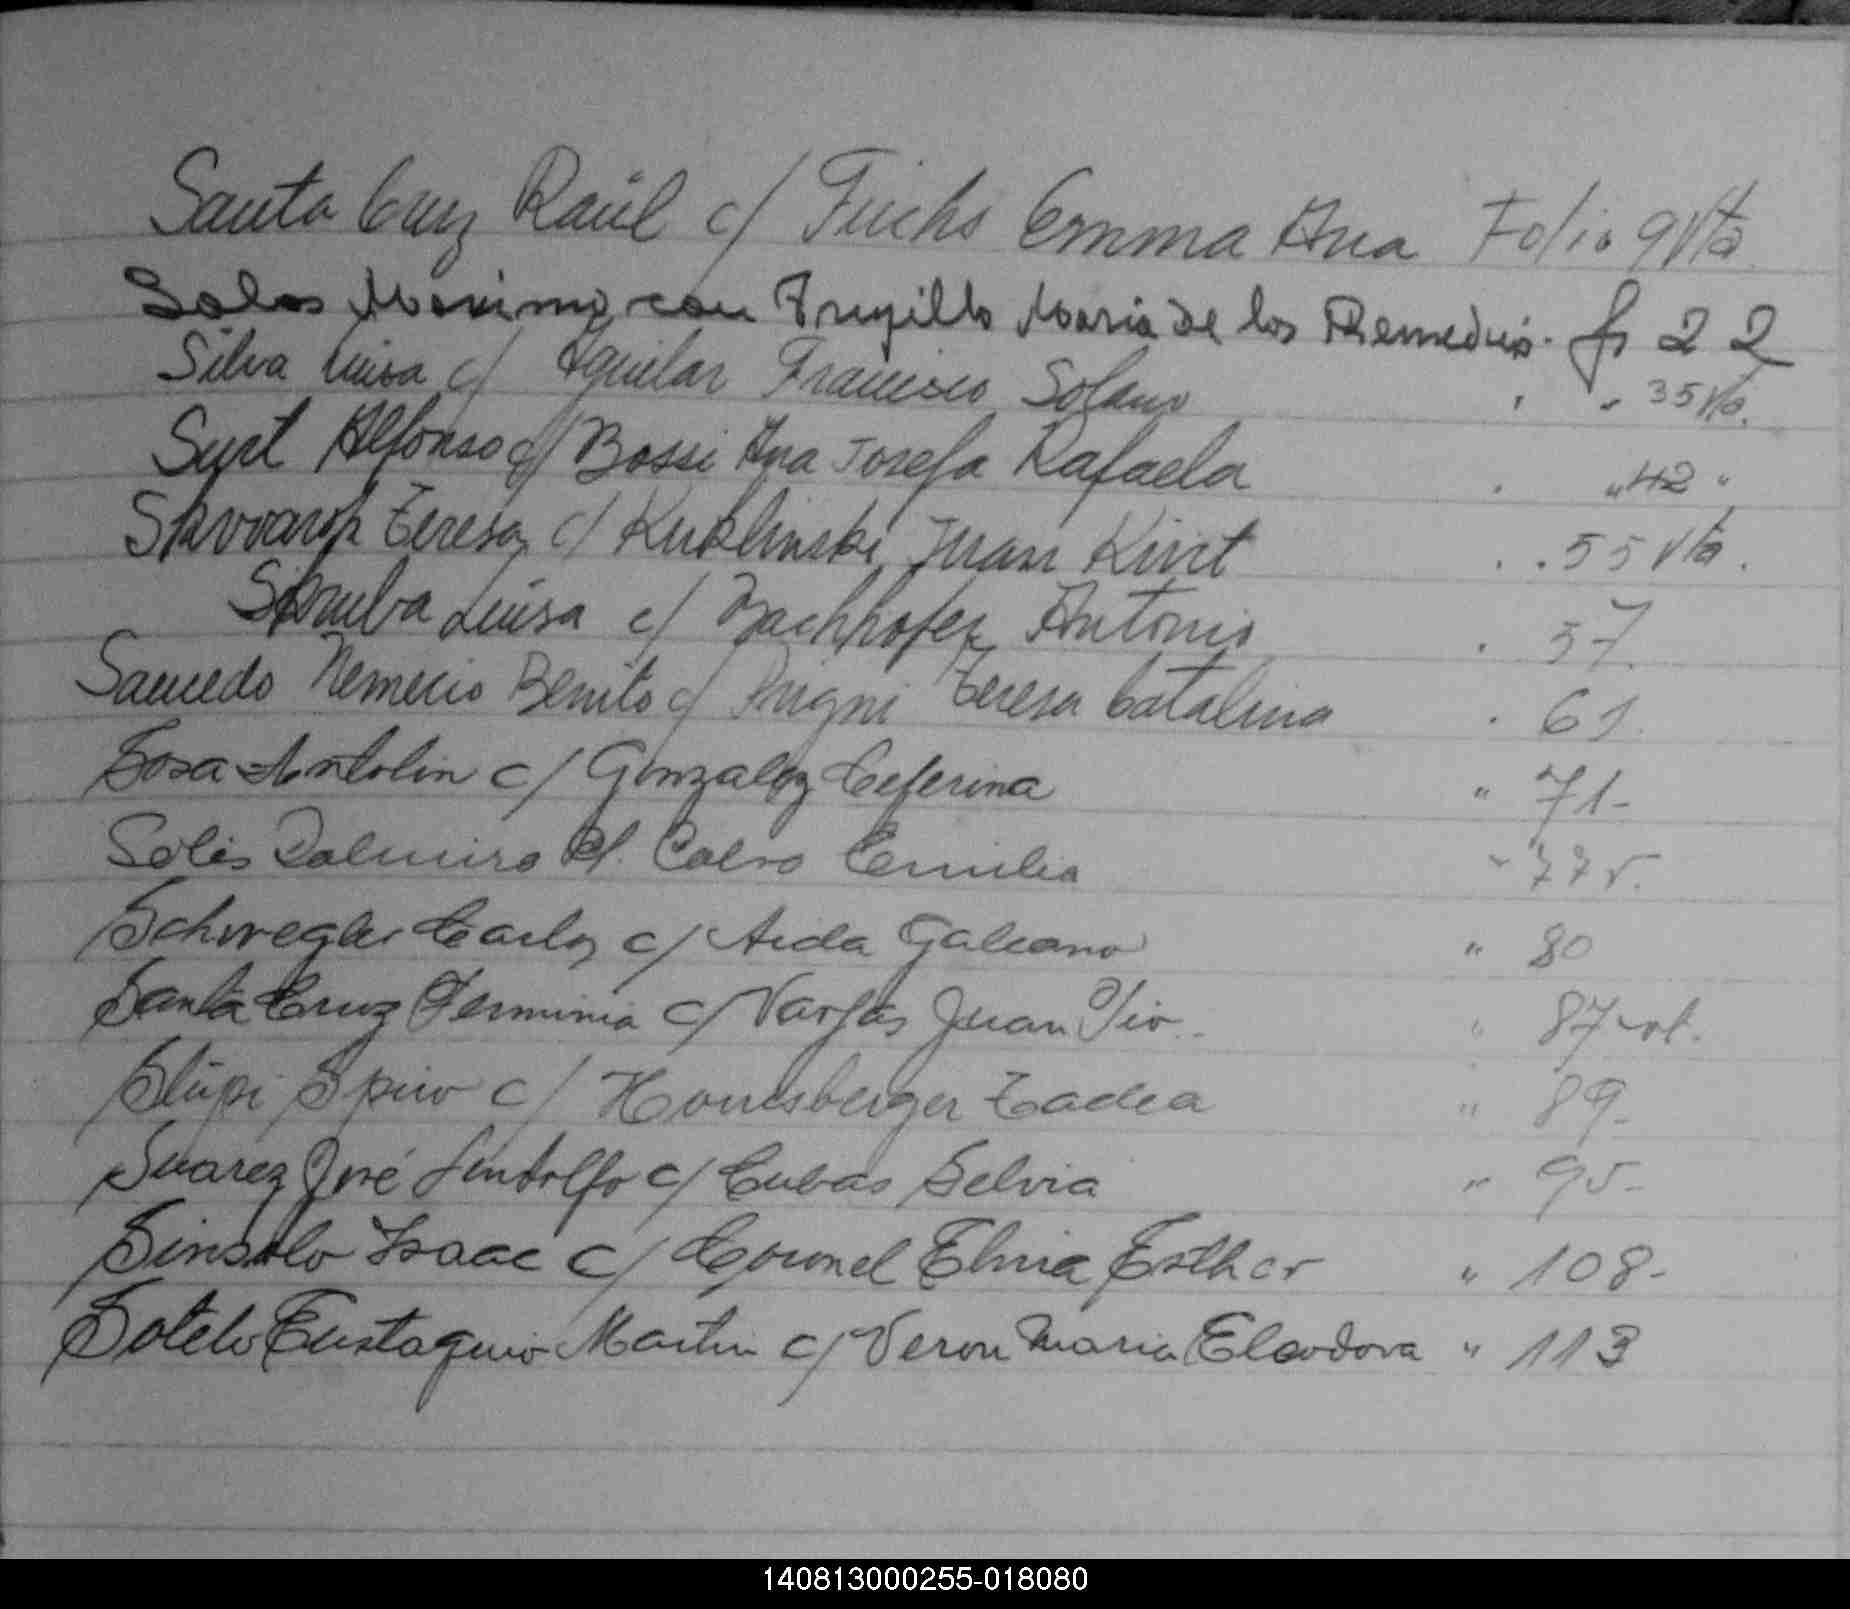 Santa Cruz Raúl c/ Fuchs Emma Ana Folio 9 Vta
Salas Maximo con Trujillo Maria de los Remedios. fs 22
Silva Luisa c/ Aguilar Francisco Solano " " 35 Vta.
Alfonso c/ Bossi Ana Josefa Rafaela . " 42 "
Teresa c/ Kuklinski Juan Kurt . . 55 Vta.
Skruba Luisa c/ Bachhofer Antonio . 57.
Saucedo Nemecio Benito c/ Teresa Catalina . 61.
Sosa Antolin c/ Gonzalez Ceferina " 71-
Solis Dalmiro c/. Calvo Emilia " 77 v.
Schwegler Carlos c/ Aida Galeano " 80
Santa Cruz Ferminia c/ Vargas Juan Pio. " 87 vt.
c/ Tadea " 89-
Suarez José Lindolfo c/ Cubas Selvia " 95-
Isaac c/ Coronel Elvia Esther " 108-
Sotelo Eustaquio Martin c/ Veron Maria Eleodora " 113
140813000255-018080